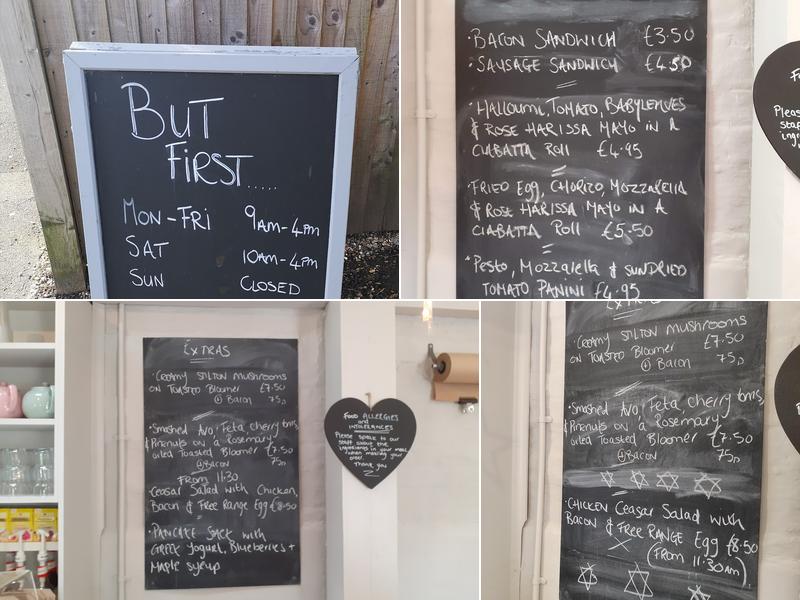 BUT
FIRST.....
MON-FRI 9AM-4PM
SAT 10AM-4PM
SUN CLOSED
·BACON SANDWICH £3·50
·SAUSAGE SANDWICH £4·50
·HALLOUMI, TOMATO, BABYLEAVES
& ROSE HARISSA MAYO IN A
CIABATTA ROLL £4·95
·FRIED EGG, CHORIZO, MOZZARELLA
& ROSE HARISSA MAYO IN A
CIABATTA ROLL £5·50
·PESTO, MOZZARELLA & SUNDRIED
TOMATO PANINI £4·95
Pleas
staf
ingr
EXTRAS
·CREAMY STILTON MUSHROOMS
ON TOASTED Bloomer £7·50
+ Bacon 75p
·Smashed Avo, Feta, cherry toms,
& Pinenuts on a Rosemary
oiled Toasted Bloomer £7·50
+ BACON 75p
From 11·30
Ceasar Salad with Chicken,
Bacon & Free Range Egg £8·50
·PANCAKE Stack with
Greek Yogurt, Blueberries +
Maple syrup
Food ALLERGIES
and
INTOLERANCES
Please speak to our
staff about the
ingredients in your meal,
when making your
order.
Thank you
EXTRAS
·CREAMY STILTON MUSHROOMS
ON TOASTED Bloomer £7·50
+ Bacon 75p
·Smashed Avo, Feta, cherry toms,
& Pinenuts on a Rosemary
oiled Toasted Bloomer £7·50
+ BACON 75p
·CHICKEN Ceasar Salad with
BACON & Free RANGE Egg £8·50
(FROM 11·30am)